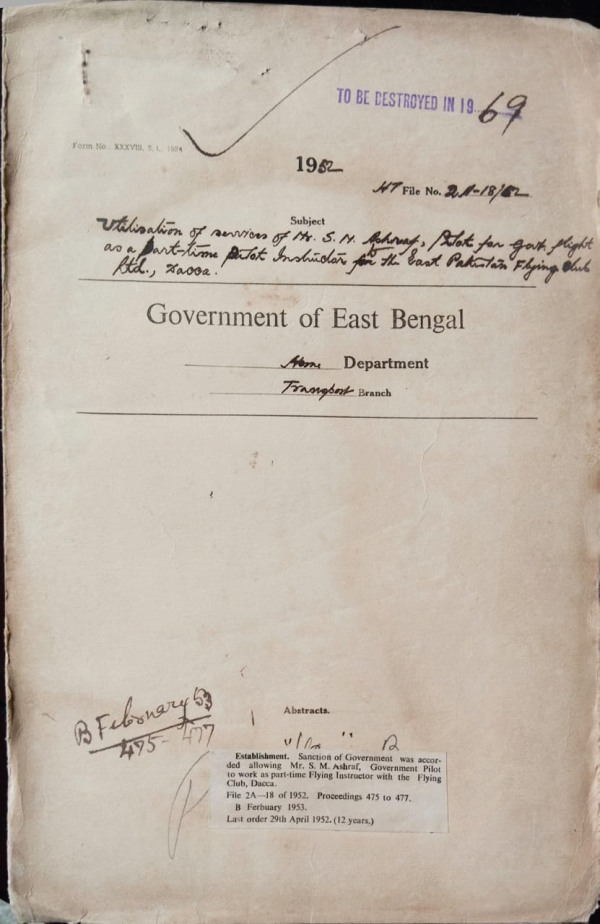 TO BE DESTROYED IN 19 69
Form No. XXXVIII, S. L. 1924
1952
HT File No. 2A-18/52
Subject
Utilisation of services of Mr. S. M. Ashraf, Pilot for Govt. flight
as a part-time Pilot Instructor for the East Pakistan Flying Club
Ltd., Dacca.
Government of East Bengal
Home Department
Transport Branch
B February 53
475-477
Abstracts.
Establishment. Sanction of Government was accor-
ded allowing Mr. S. M. Ashraf, Government Pilot
to work as part-time Flying Instructor with the Flying
Club, Dacca.
File 2A—18 of 1952. Proceedings 475 to 477.
B Ferbuary 1953.
Last order 29th April 1952. (12 years.)